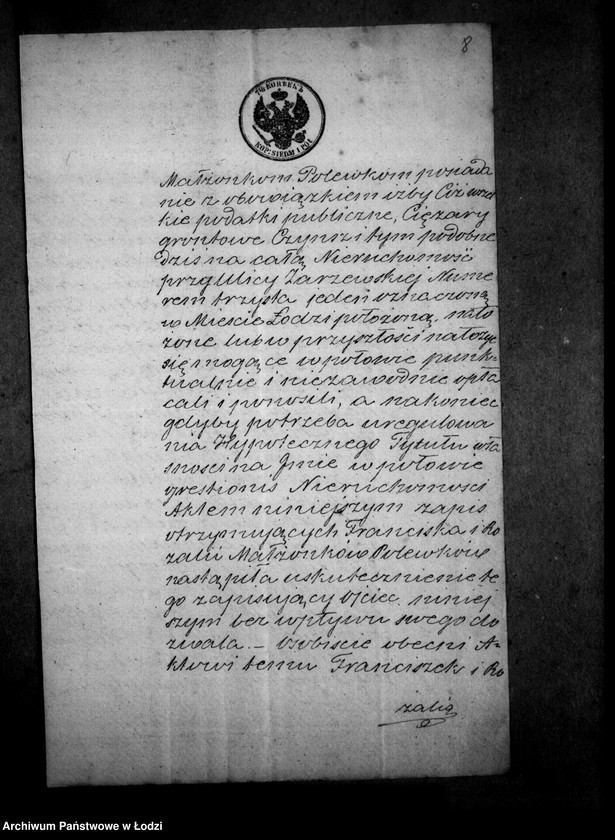 8
7½ КОПѢЕКЪ
KOP: SIEDM I PÓŁ
Małżonkom Polewkom posiada
nie z obowiązkiem iżby Ciż wszel
kie podatki publiczne, Ciężary
grontowe Czynsz i tym podobne
dziś na całą Nieruchomość
przy Ulicy Zarzewskiej Nume
rem trzysta jeden oznaczoną
w Mieście Łodzi położoną, nało
żone lub w przyszłości nałożyć
się mogące w połowie punk
tualnie i niezawodnie opła
cali i ponosili, a nakoniec
gdyby potrzeba uregulowa
nia Hypotecznego Tytułu wła
sności na Imie w połowie
qrestionis Nieruchomości
Aktem niniejszym zapis
otrzymujących Franciszka i Ro
zalii Małżonków Polewków
nastąpiła uskutecznienie te
go zapisujący Ojciec niniej
szym bez wpływu swego do
zwala. – Osobiście obecni A
ktowi temu Franciszek i Ro
zalia
Archiwum Państwowe w Łodzi